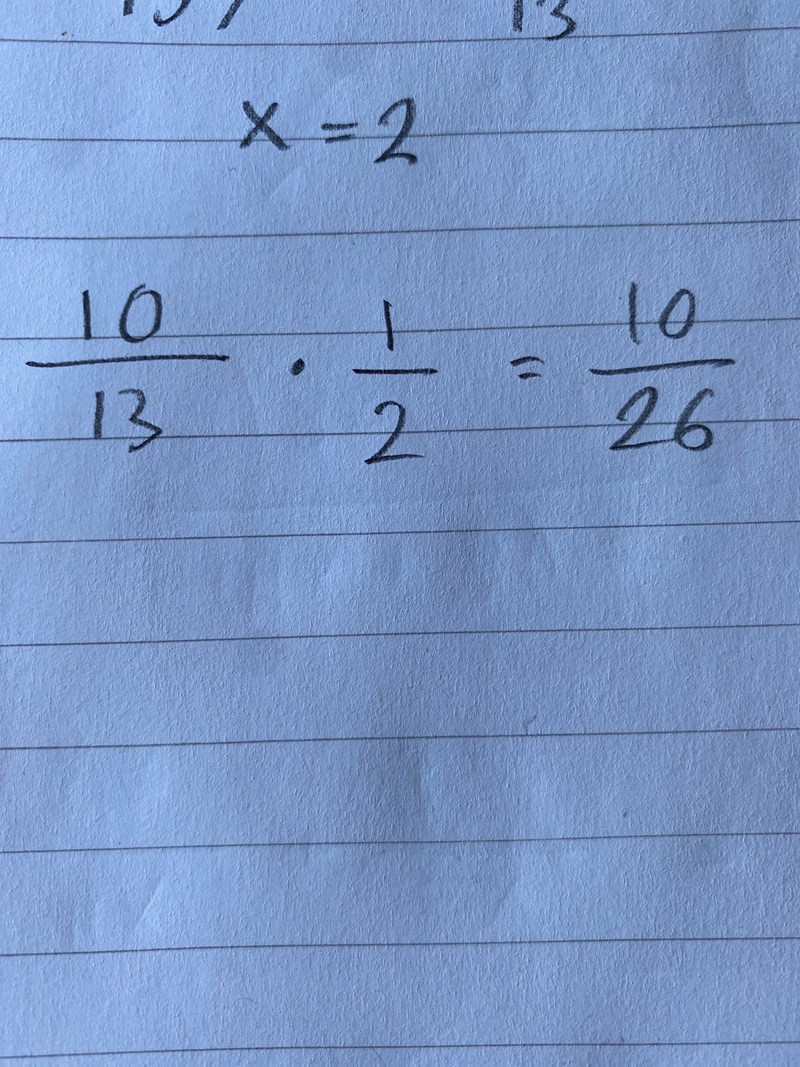 13
x = 2
10/13 · 1/2 = 10/26